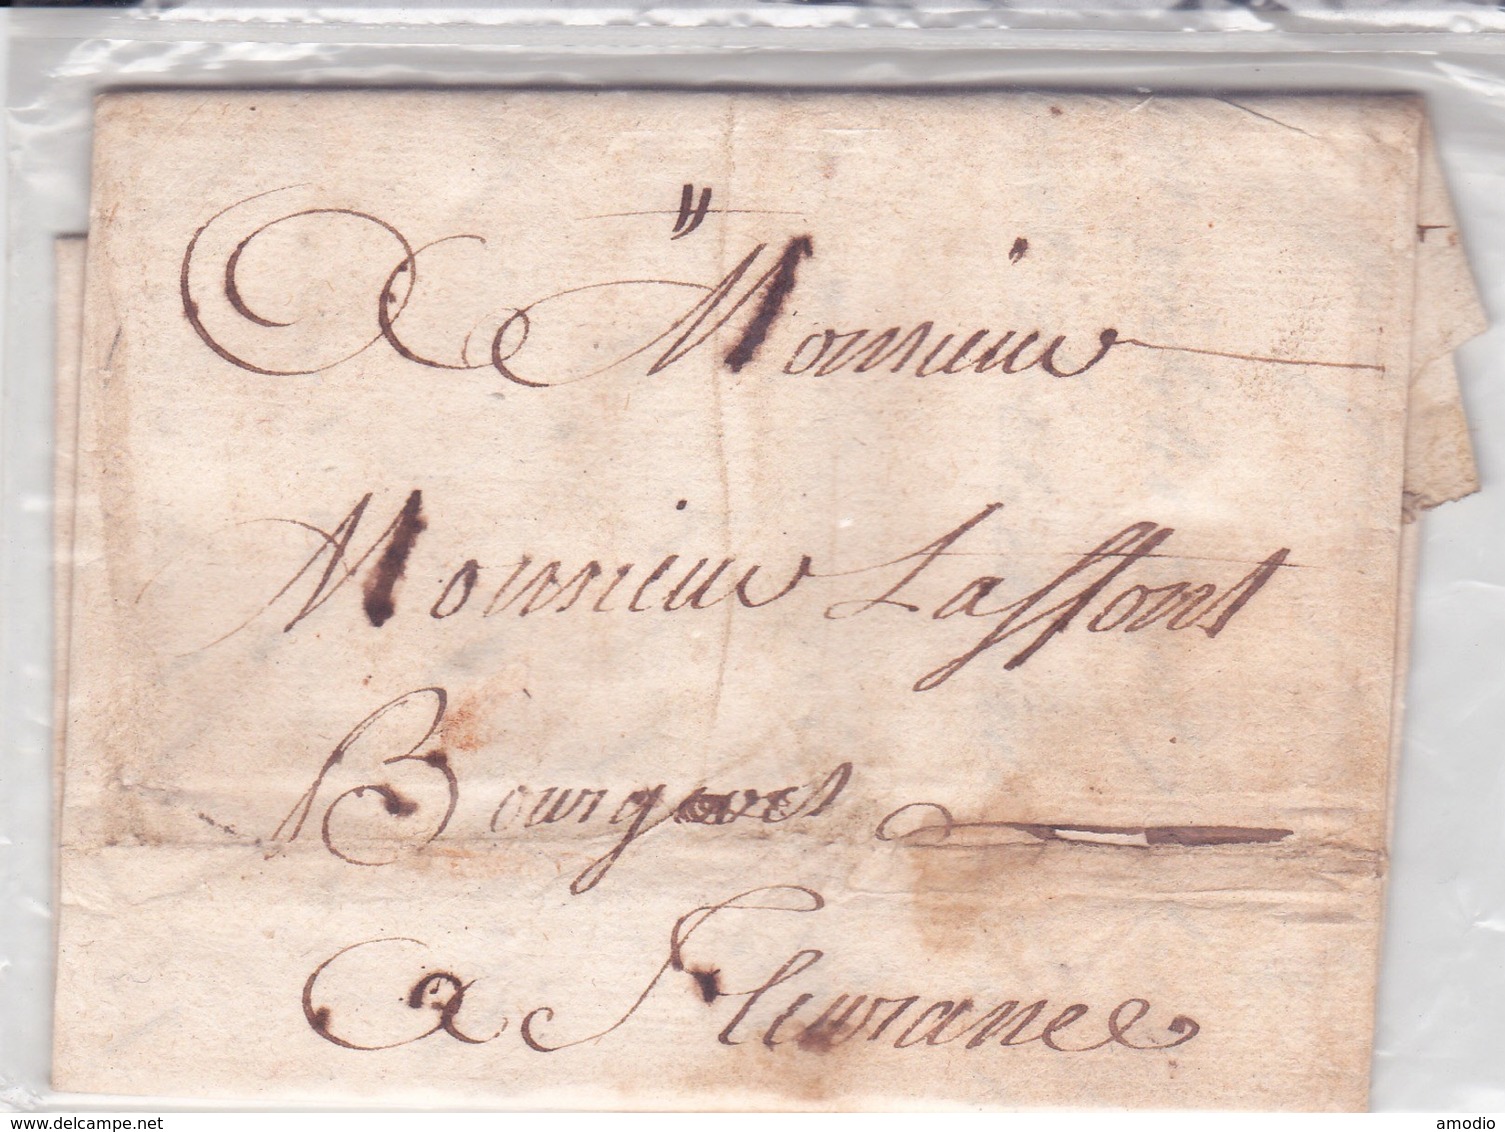 A Monsieur
Monsieur Laffont
Bourgeois
A Fleurance
delcampe.net
amodio